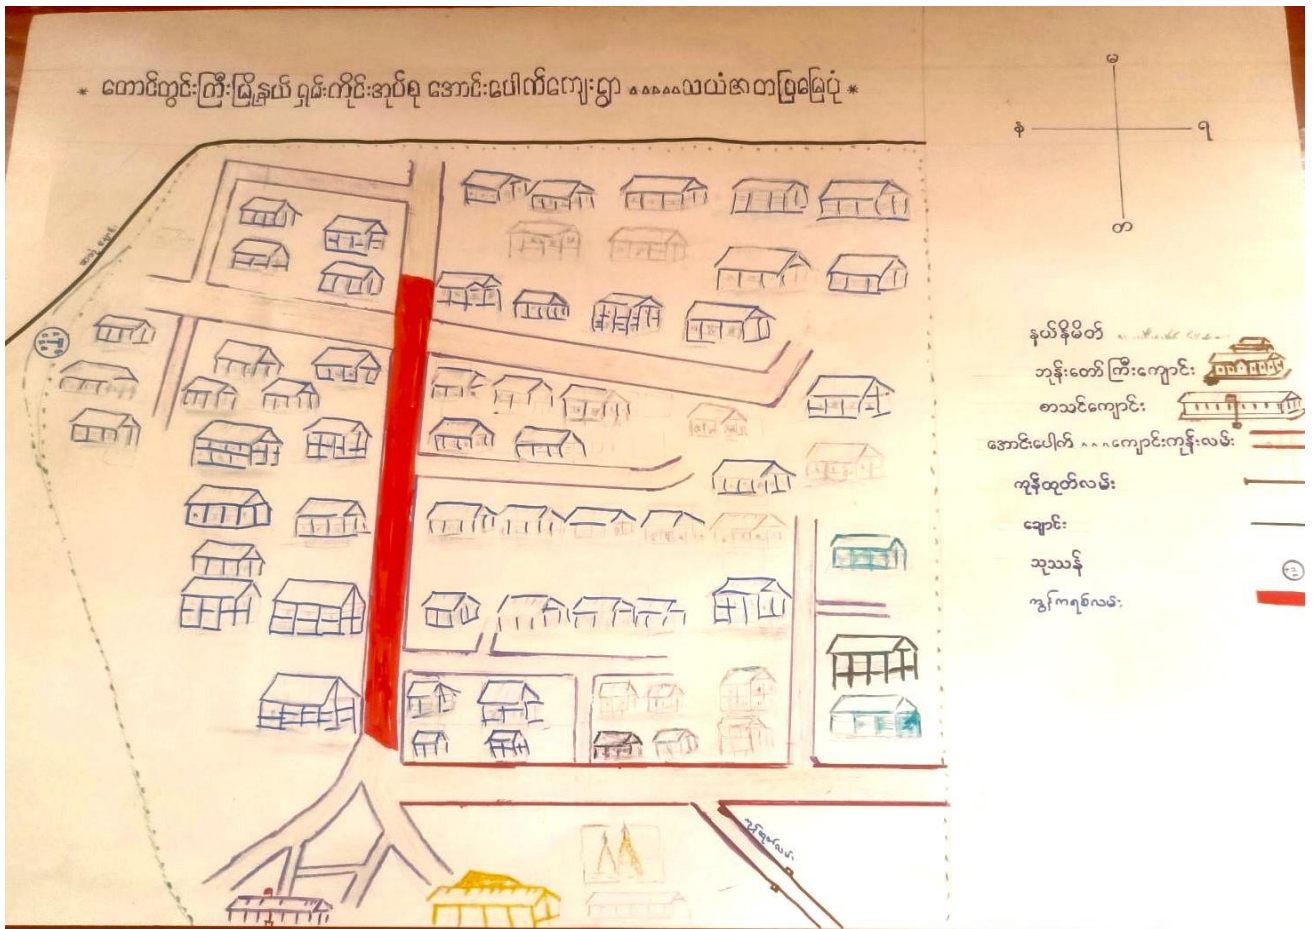 * တောင်တွင်းကြီးမြို့နယ် ရှမ်းကိုင်းအုပ်စု အောင်းပေါက်ကျေးရွာ ..... သယံဇာတပြမြေပုံ *
မ
န
ရ
တ
နယ်နိမိတ်
ဘုန်းတော်ကြီးကျောင်း
စာသင်ကျောင်း
အောင်းပေါက် ... ကျောင်းကုန်းလမ်း
ကုန်ထုတ်လမ်း
ချောင်း
သုဿန်
ကွန်ကရစ်လမ်း
ကုန်ထုတ်လမ်း